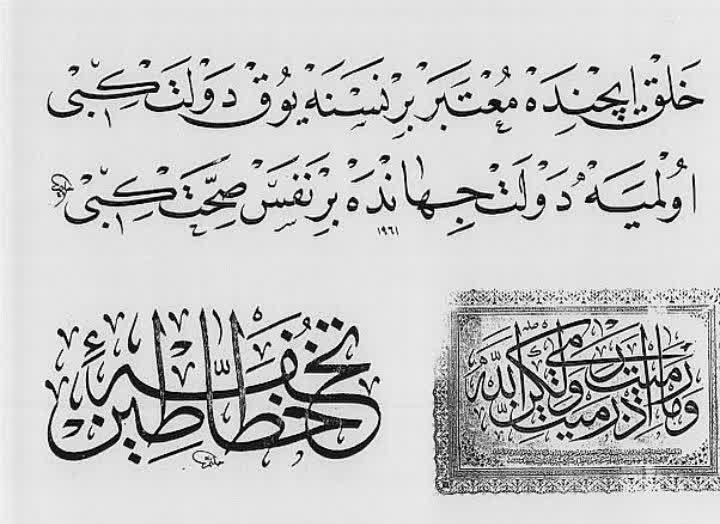 خَلْق اِيچِنْدَه مُعْتَبَرْ بِرْ نَسْنَه يُوقْ دَوْلَتْ كِبِى
اُولْمَيَه دَوْلَتْ جِهَانْدَه بِرْ نَفَسْ صِحَّتْ كِبِى
١٩٦١
تحفهٔ خطاطين
وما رميت اذ رميت ولكن الله رمى